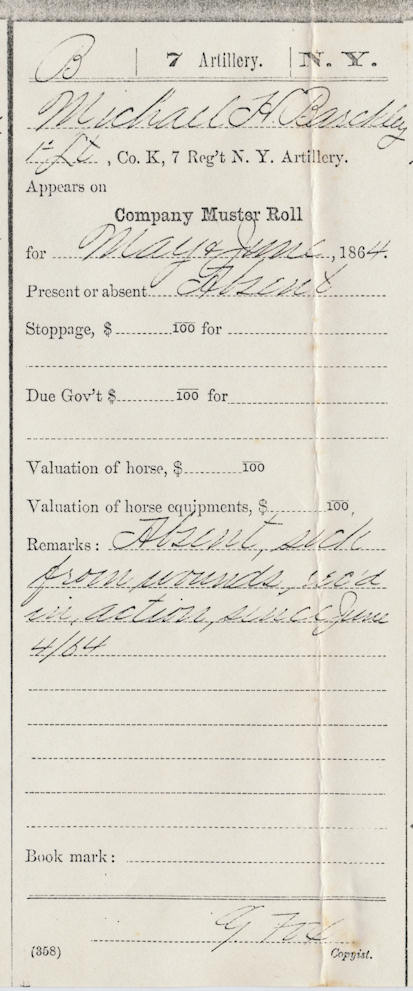 B | 7 Artillery. | N. Y.
Michael H. Barckley
1st Lt, Co. K, 7 Reg't N. Y. Artillery.
Appears on
Company Muster Roll
for May & June, 1864.
Present or absent Absent
Stoppage, $ 100 for
Due Gov't $ 100 for
Valuation of horse, $ 100
Valuation of horse equipments, $ 100.
Remarks: Absent, sick
from wounds, rec'd
in action, since June
4/64
Book mark:
(358) Copyist.